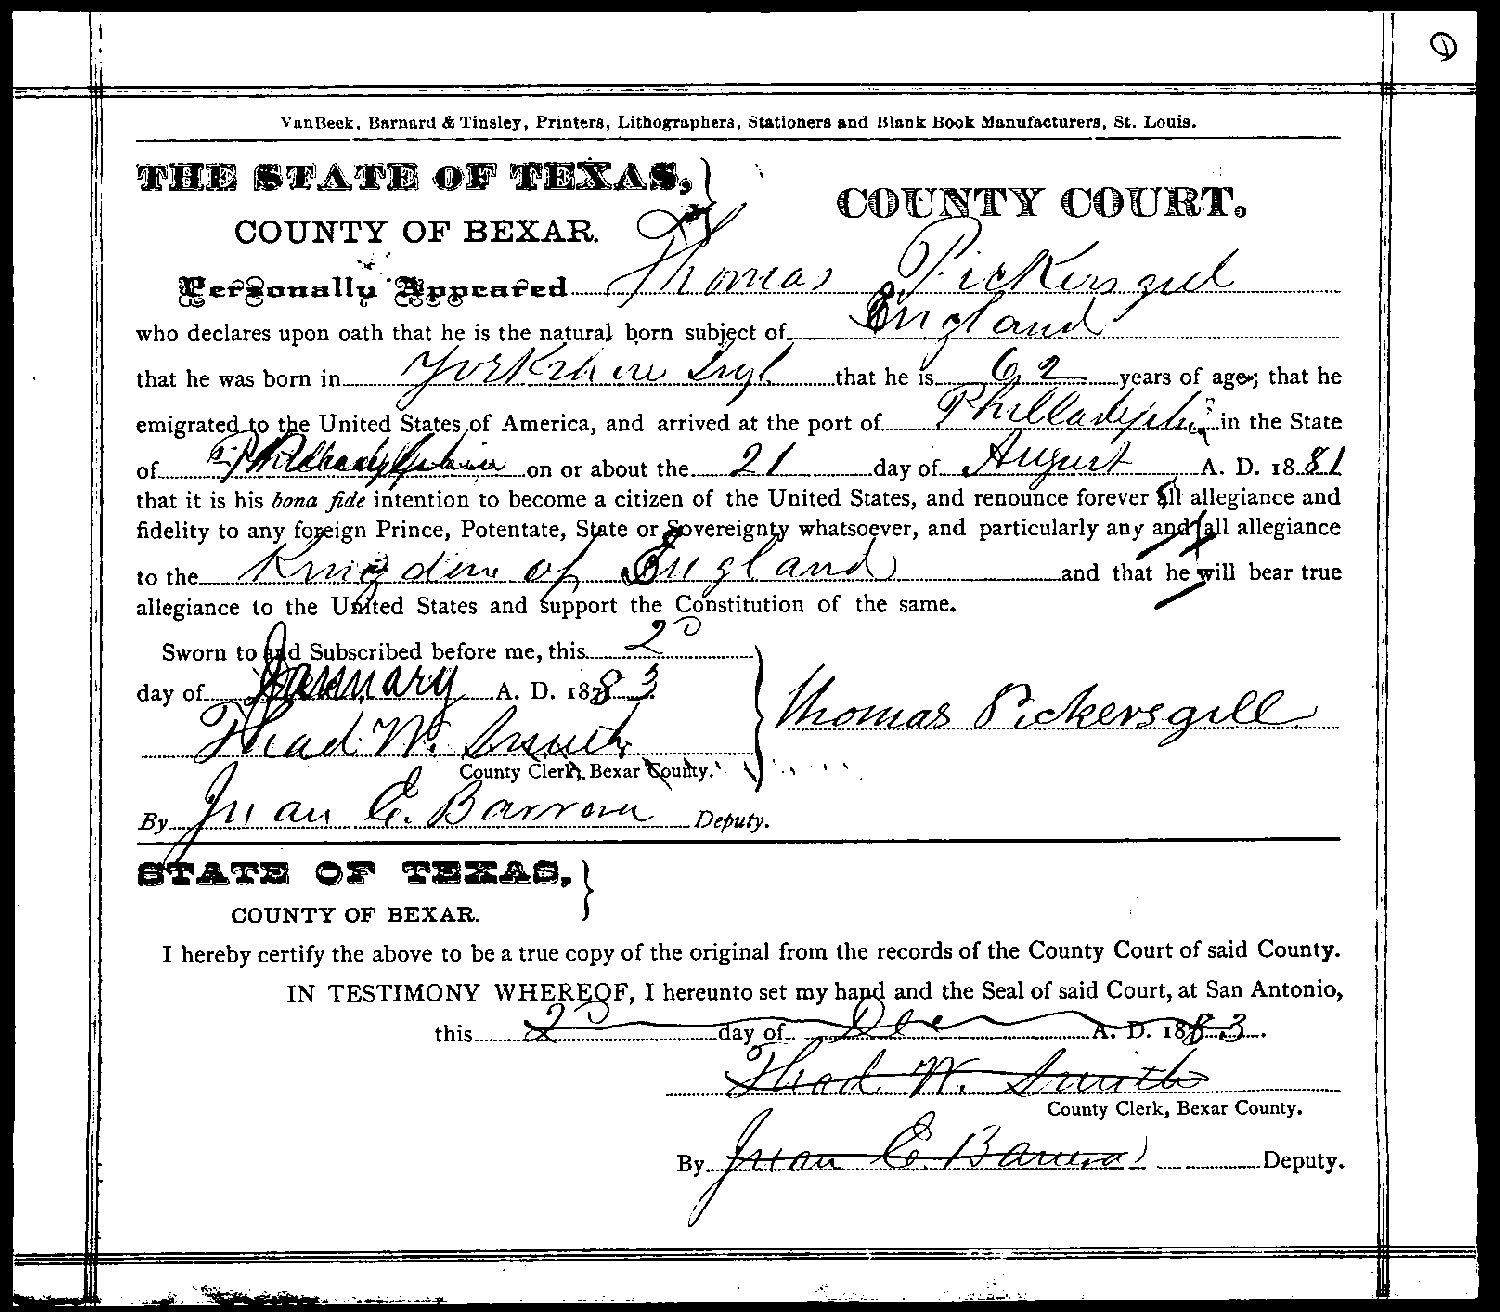 VanBeek, Barnard & Tinsley, Printers, Lithographers, Stationers and Blank Book Manufacturers, St. Louis.
THE STATE OF TEXAS,
COUNTY OF BEXAR.
COUNTY COURT.
Personally Appeared Thomas Pickersgill
who declares upon oath that he is the natural born subject of England
that he was born in Yorkshire Engl that he is 62 years of age; that he
emigrated to the United States of America, and arrived at the port of in the State
of on or about the 21 day of August A. D. 1881
that it is his bona fide intention to become a citizen of the United States, and renounce forever all allegiance and
fidelity to any foreign Prince, Potentate, State or Sovereignty whatsoever, and particularly any and all allegiance
to the Kingdom of England and that he will bear true
allegiance to the United States and support the Constitution of the same.
Sworn to and Subscribed before me, this 2D
day of January A. D. 1883
Thomas Pickersgill
Thad W. Smith
County Clerk, Bexar County.
By Juan E. Barrera Deputy.
STATE OF TEXAS,
COUNTY OF BEXAR.
I hereby certify the above to be a true copy of the original from the records of the County Court of said County.
IN TESTIMONY WHEREOF, I hereunto set my hand and the Seal of said Court, at San Antonio,
this 2D day of A. D. 1883.
Thad W. Smith
County Clerk, Bexar County.
By Juan E. Barrera Deputy.